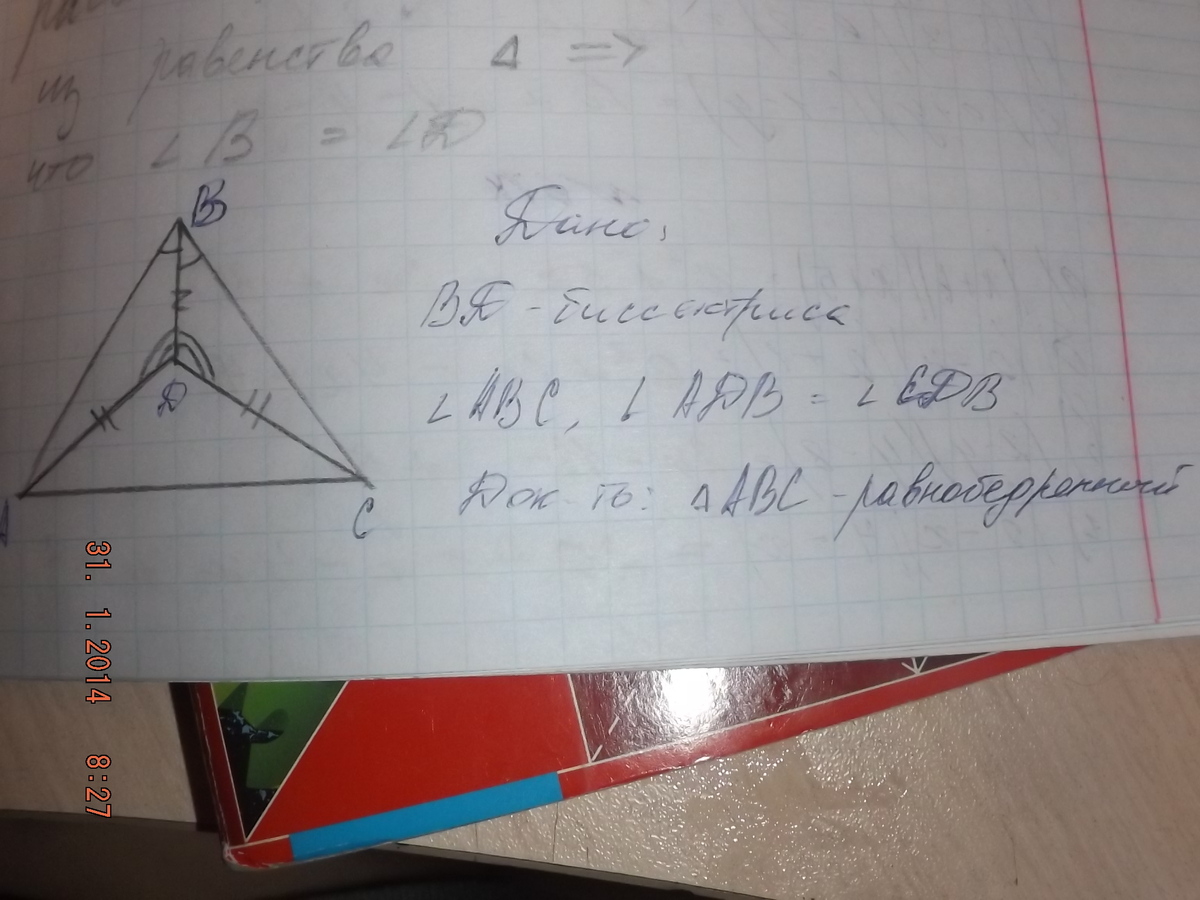 из равенства Δ =>
что ∠B = ∠D
B
Дано:
BD - биссектриса
D
∠ABC, ∠ADB = ∠CDB
Док-ть: ΔABC - равнобедренный
A
C
31. 1.2014 8:27